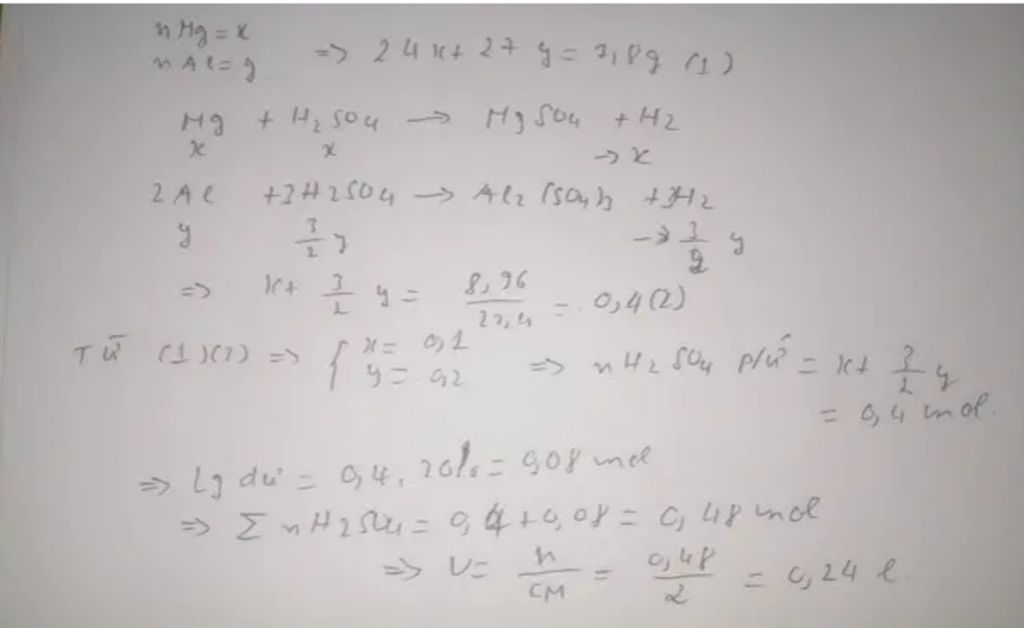 nMg = x
nAl = y => 24x + 27y = 7,8g (1)
Mg + H2SO4 -> MgSO4 + H2
x x -> x
2Al + 3H2SO4 -> Al2(SO4)3 + 3H2
y 3/2 y -> 3/2 y
=> x + 3/2 y = 8,96/22,4 = 0,4 (2)
Từ (1)(2) => { x = 0,1
y = 0,2 => nH2SO4 p/ứ = x + 3/2 y
= 0,4 mol.
=> Lg dư = 0,4 . 20% = 0,08 mol
=> Σ nH2SO4 = 0,4 + 0,08 = 0,48 mol
=> V = n/CM = 0,48/2 = 0,24 l.